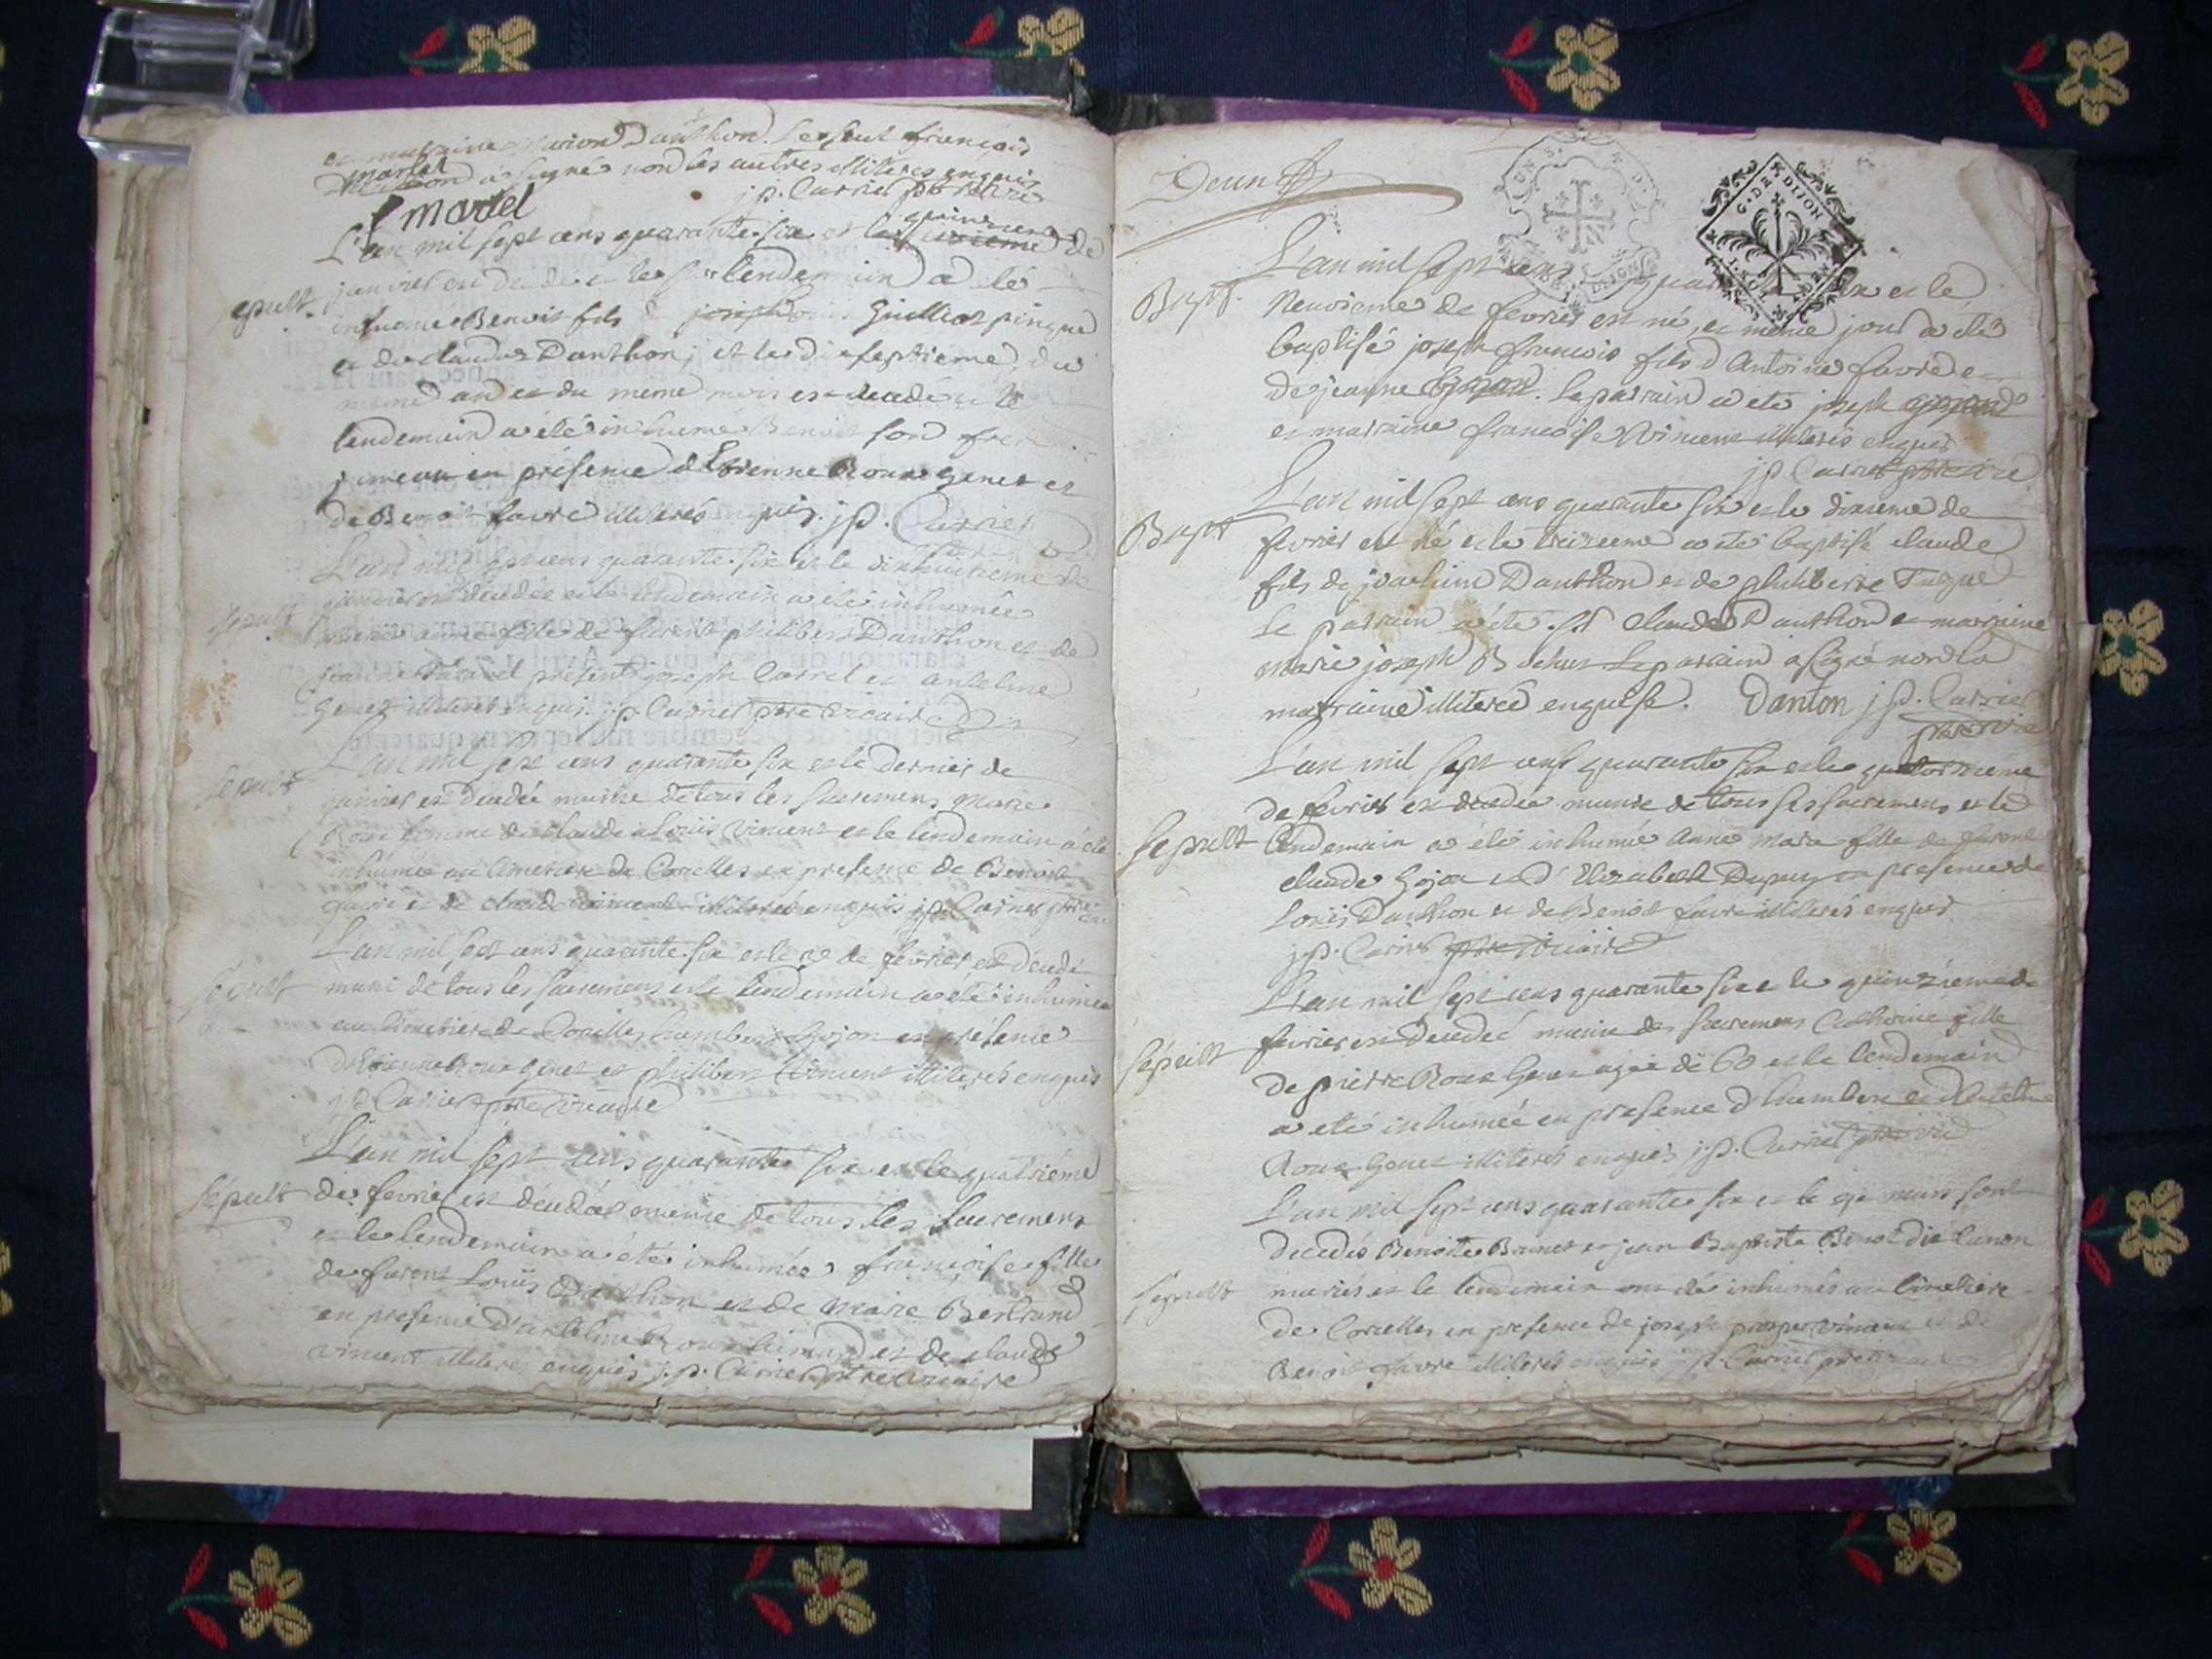 et marraine Marion Danthon. Le seul françois
martel
a signé non les autres illiteres enquis
martel
j.p. Carrier ptre vicaire
L'an mil sept cens quarante six et le quinzieme de
janvier est décédé et le lendemain a été
sepult.
inhumé Benoit fils Guilliot pingue
et de claudine Danthon ; et le dix septieme du
meme an et du meme mois est decedé et le
lendemain a été inhumé Benoit son frere
jumeau en présence d'Etienne Roux genet et
de Benoit favre illiterés enquis. j.p. Carrier
L'an mil sept cens quarante six et le dixhuitieme de
janvier est décédée et le lendemain a été inhumée
sepult
marie anne fille de furent philibert Danthon et de
presents joseph Carrel et anteline
Genet illiteres enquis. j.p. Carrier ptre vicaire
L'an mil sept cens quarante six et le dernier de
sepult
janvier est décédée munie de tous les sacremens Marie
Roux femme de claude Loüis vincent et le lendemain a été
inhumée au cimetiere de Corcelles en presence de Benoit
favre et de claude vincent illiterés enquis j.p. Carrier ptre
L'an mil sept cens quarante six et le de fevrier est decedé
sepult
muni de tous les sacremens et le lendemain a été inhumé
au cimetiere de Corcelles humbert Gojon en présence
d'Etienne Roux genet et philibert vincent illiterés enquis
j.p. Carrier ptre vicaire
L'an mil sept cens quarante six et le quatriéme
sépult
de fevrier est décédée munie de tous les sacremens
et le lendemain a été inhumée françoise fille
de furent Loüis Danthon et de marie Bertrand
en presence d'anteline Roux et de claude
vincent illiteres enquis j.p. Carrier ptre vicaire
Deux
G. DE DIJON
L'an mil sept cens quarante six et le
Bapt.
Neuvieme de fevrier est né, et meme jour a été
baptisé joseph françois fils d'Antoine favre et
de jeanne. Le parrain a été joseph
et marraine francoise vincent illiterés enquis
j.p. Carrier ptre vicaire
L'an mil sept cens quarante six et le dixieme de
Bapt
fevrier est né et le treizieme a été baptisé claude
fils de joachim Danthon et de philiberte
Le parrain a été Sr claude Danthon et marraine
marie joseph Le parrain a signé non la
marraine illiterée enquise. Danton j.p. Carrier
ptre vicaire
L'an mil sept cens quarante six et le quatorzieme
de fevrier est decedée munie de tous les sacremens et le
sepult
lendemain a été inhumée anne marie fille de furent
claude Gojon et d'Elizabeth Dupuy en presence de
Loüis Danthon et de Benoit favre illiterés enquis
j.p. Carrier ptre vicaire
L'an mil sept cens quarante six et le quinziéme de
fevrier est decedeé munie des sacremens Catherine fille
sépult
de pierre Roux Genet agée de 60 et le lendemain
a été inhumeé en presence d'humbert et d'Anteline
Roux Genet illiteres enquis j.p. Carrier ptre vic
L'an mil sept cens quarante six et le mars sont
decedés Benoite Brunet et jean Baptiste Benoit dit
sépult
mariés et le lendemain ont été inhumés au cimetiere
de Corcelles en presence de joseph prosper vincent et de
Benoit favre illiterés enquis j.p. Carrier ptre vicaire